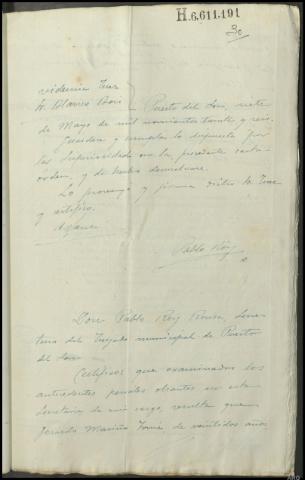 H.6.611.191
30
Providencia Juez
Sr. Blanco Bore
Puerto del Son, siete
de Mayo de mil novecientos treinta y seis.
Guardese y cumplase lo dispuesto por
la Superioridad en la precedente carta-
orden, y de hecho devuelvase.
Lo proveyo y firma dicho Sr. Juez
y certifico.
Pablo Rey
Don Pablo Rey Rouso, Secre-
tario del Juzgado municipal de Puerto
del Son
Certifico: que examinados los
antecedentes penales obrantes en esta
Secretaria de mi cargo, resulta que
Gerardo Mariño Tomé de veintidos años